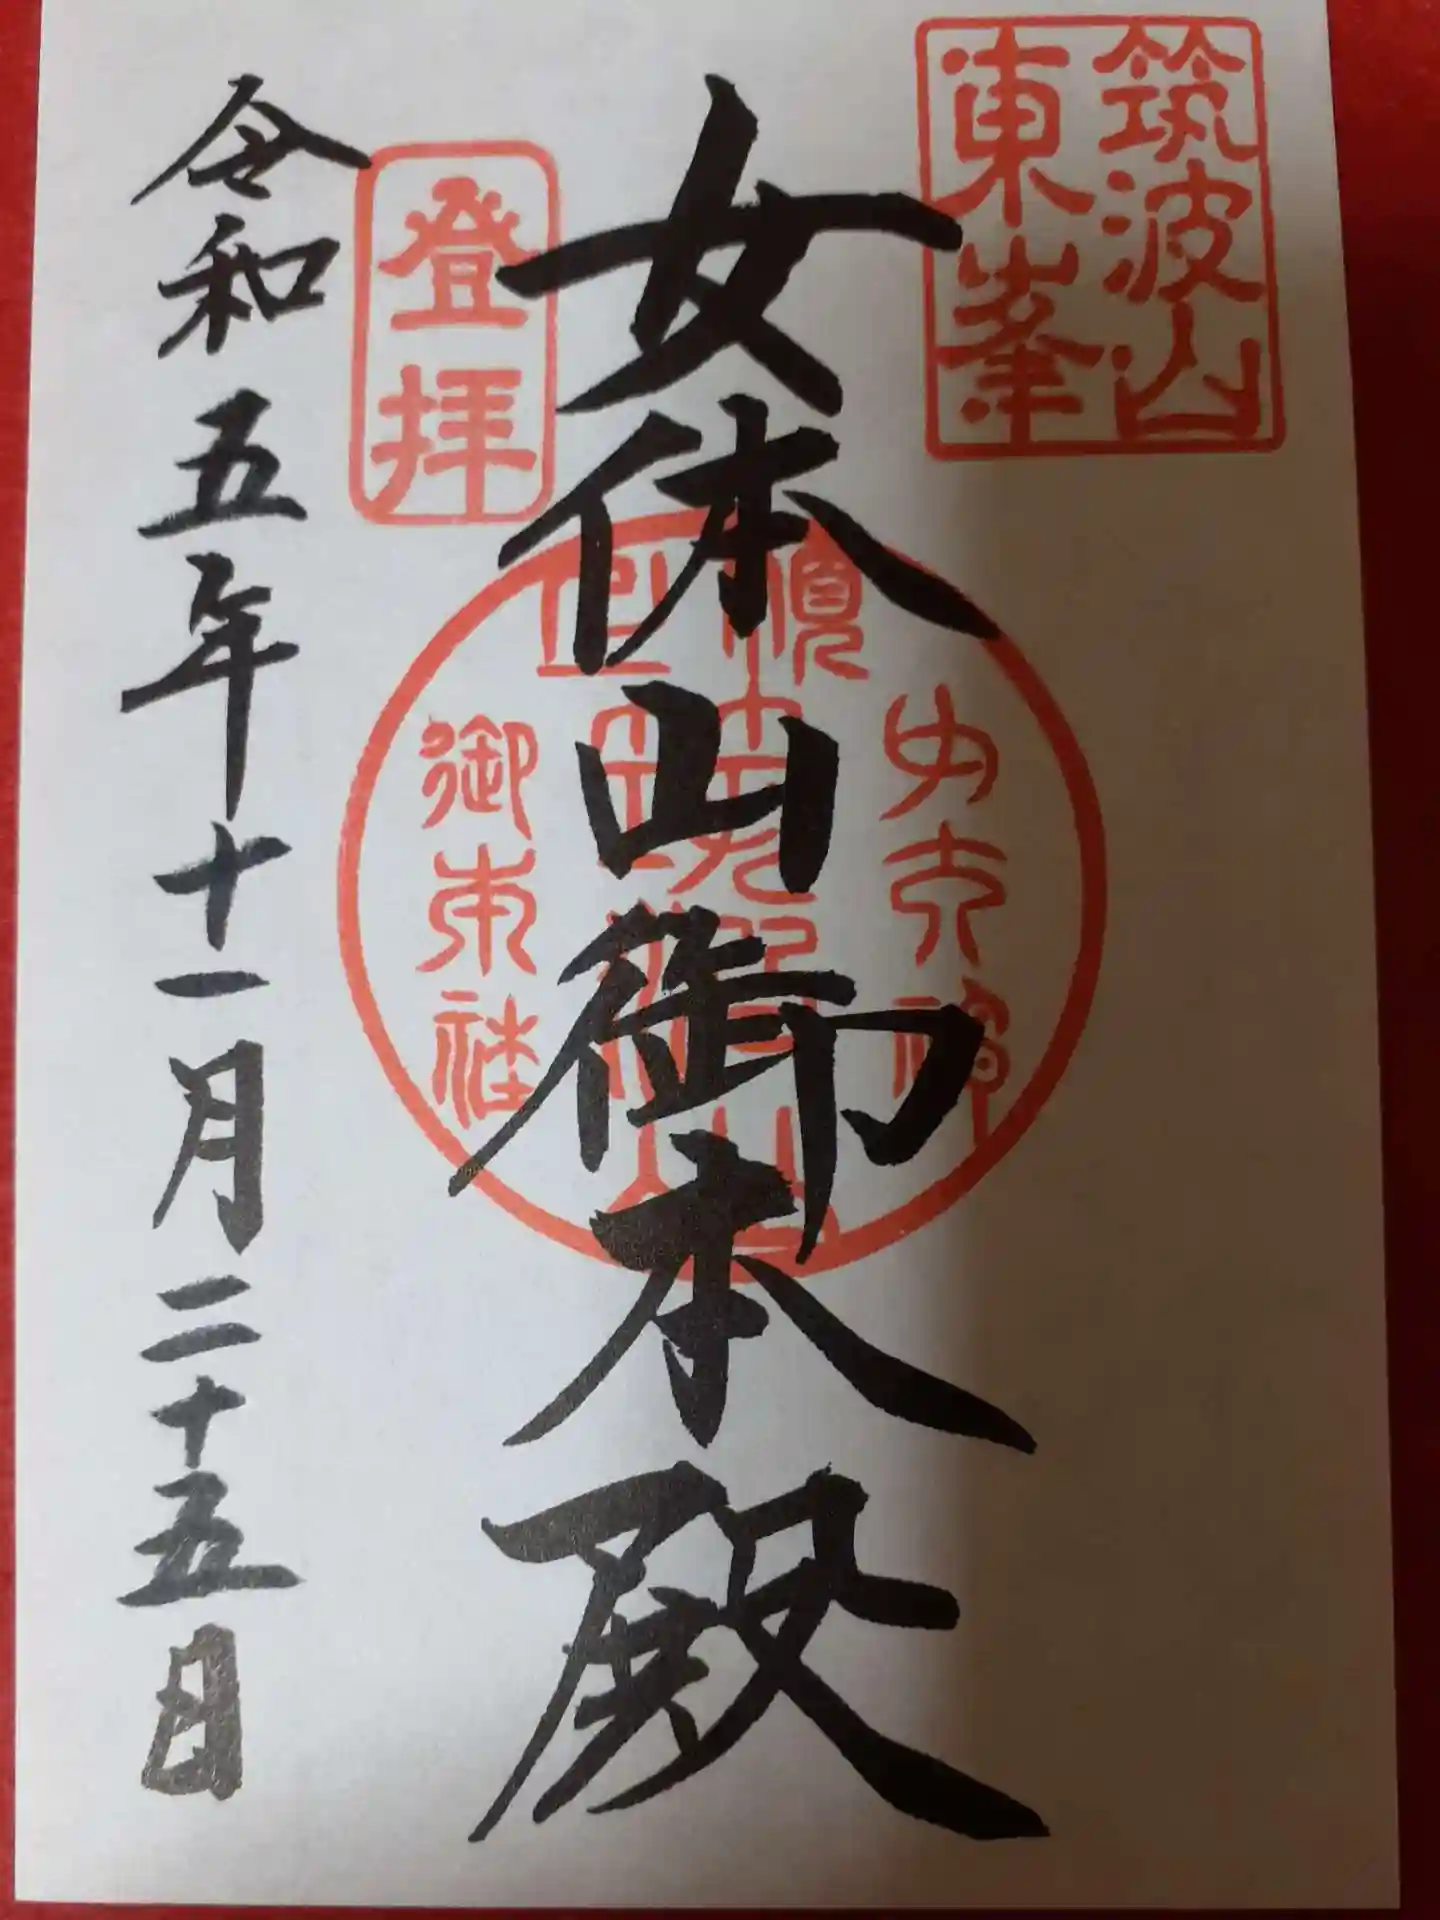 筑波山
東峯
女体山御本殿
登拝
令和五年十一月二十五日